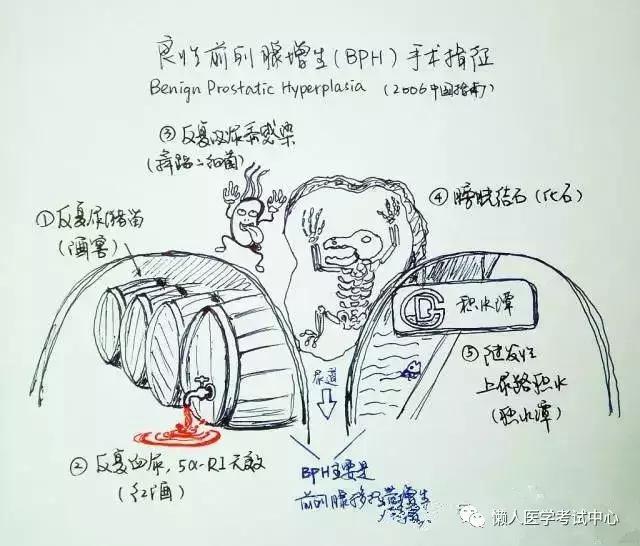 良性前列腺增生(BPH)手术指征
Benign Prostatic Hyperplasia (2006中国指南)
③反复泌尿系感染
(舞蹈 细菌)
①反复尿潴留
(酒窖)
④膀胱结石(化石)
积水潭
⑤继发性
上尿路积水
(积水潭)
尿道
②反复血尿,5α-RI无效
(红酒)
BPH主要是
前列腺移行带增生
懒人医学考试中心